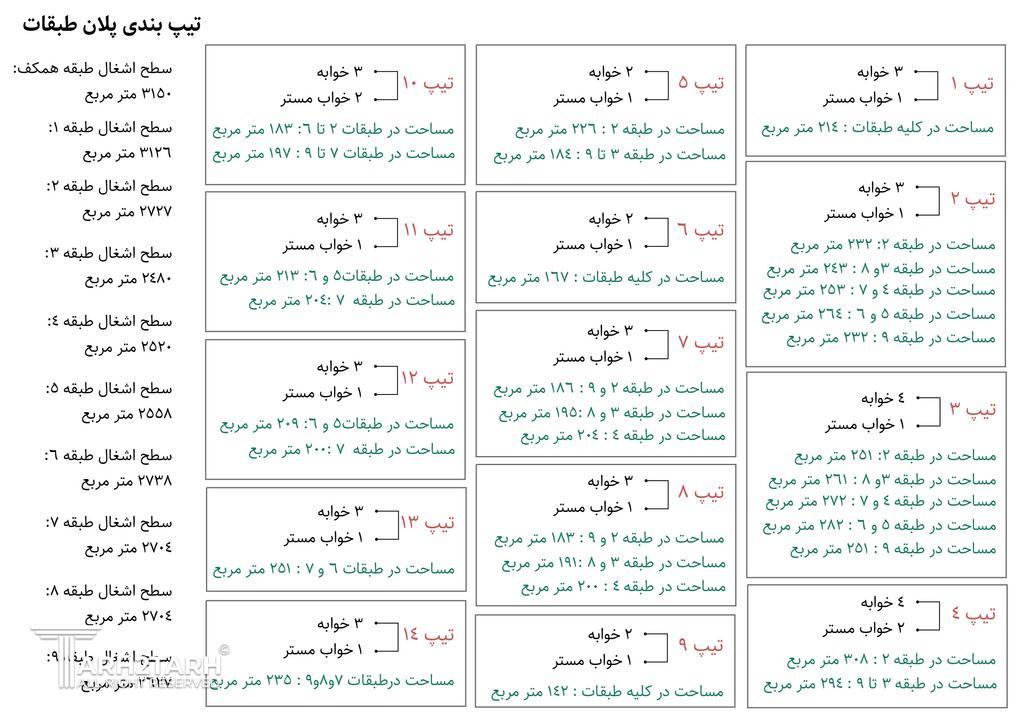 تیپ بندی پلان طبقات
تیپ ۱
۳ خوابه
۱ خواب مستر
مساحت در کلیه طبقات : ۲۱٤ متر مربع
تیپ ۲
۳ خوابه
۱ خواب مستر
مساحت در طبقه ۲: ۲۳۲ متر مربع
مساحت در طبقه ۳و ۸ : ۲٤۳ متر مربع
مساحت در طبقه ٤ و ۷ : ۲٥۳ متر مربع
مساحت در طبقه ٥ و ٦ : ۲٦٤ متر مربع
مساحت در طبقه ۹ : ۲۳۲ متر مربع
تیپ ۳
٤ خوابه
۱ خواب مستر
مساحت در طبقه ۲: ۲٥۱ متر مربع
مساحت در طبقه ۳و ۸ : ۲٦۱ متر مربع
مساحت در طبقه ٤ و ۷ : ۲۷۲ متر مربع
مساحت در طبقه ٥ و ٦ : ۲۸۲ متر مربع
مساحت در طبقه ۹ : ۲٥۱ متر مربع
تیپ ٤
٤ خوابه
۲ خواب مستر
مساحت در طبقه ۲ : ۳۰۸ متر مربع
مساحت در طبقه ۳ تا ۹ : ۲۹٤ متر مربع
تیپ ٥
۲ خوابه
۱ خواب مستر
مساحت در طبقه ۲ : ۲۲٦ متر مربع
مساحت در طبقه ۳ تا ۹ : ۱۸٤ متر مربع
تیپ ٦
۲ خوابه
۱ خواب مستر
مساحت در کلیه طبقات : ۱٦۷ متر مربع
تیپ ۷
۳ خوابه
۱ خواب مستر
مساحت در طبقه ۲ و ۹ : ۱۸٦ متر مربع
مساحت در طبقه ۳ و ۸ :۱۹٥ متر مربع
مساحت در طبقه ٤ : ۲۰٤ متر مربع
تیپ ۸
۳ خوابه
۱ خواب مستر
مساحت در طبقه ۲ و ۹ : ۱۸۳ متر مربع
مساحت در طبقه ۳ و ۸ :۱۹۱ متر مربع
مساحت در طبقه ٤ : ۲۰۰ متر مربع
تیپ ۹
۲ خوابه
۱ خواب مستر
مساحت در کلیه طبقات : ۱٤۲ متر مربع
تیپ ۱۰
۳ خوابه
۲ خواب مستر
مساحت در طبقات ۲ تا ٦: ۱۸۳ متر مربع
مساحت در طبقات ۷ تا ۹ : ۱۹۷ متر مربع
تیپ ۱۱
۳ خوابه
۱ خواب مستر
مساحت در طبقات٥ و ٦: ۲۱۳ متر مربع
مساحت در طبقه ۷ :۲۰٤ متر مربع
تیپ ۱۲
۳ خوابه
۱ خواب مستر
مساحت در طبقات٥ و ٦: ۲۰۹ متر مربع
مساحت در طبقه ۷ :۲۰۰ متر مربع
تیپ ۱۳
۳ خوابه
۱ خواب مستر
مساحت در طبقات ٦ و ۷ : ۲٥۱ متر مربع
تیپ ۱٤
۳ خوابه
۱ خواب مستر
مساحت درطبقات ۷و۸و۹ : ۲۳٥ متر مربع
سطح اشغال طبقه همکف:
۳۱٥۰ متر مربع
سطح اشغال طبقه ۱:
۳۱۲٦ متر مربع
سطح اشغال طبقه ۲:
۲۷۲۷ متر مربع
سطح اشغال طبقه ۳:
۲٤۸۰ متر مربع
سطح اشغال طبقه ٤:
۲٥۲۰ متر مربع
سطح اشغال طبقه ٥:
۲٥٥۸ متر مربع
سطح اشغال طبقه ٦:
۲۷۳۸ متر مربع
سطح اشغال طبقه ۷:
۲۷۰٤ متر مربع
سطح اشغال طبقه ۸:
۲۷۰٤ متر مربع
سطح اشغال طبقه ۹:
متر مربع
TARH2TARH©
RIGHT RESERVED